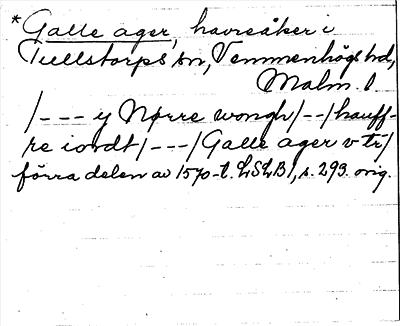 *Galle ager, havreåker i
Tullstorps sn, Vemmenhögs hd,
Malm. l
/--- y Nørre wongh/--/hauff-
re iordt/---/Galle ager v tr/
förra delen av 1570-t. LSLB1, s. 293. orig.